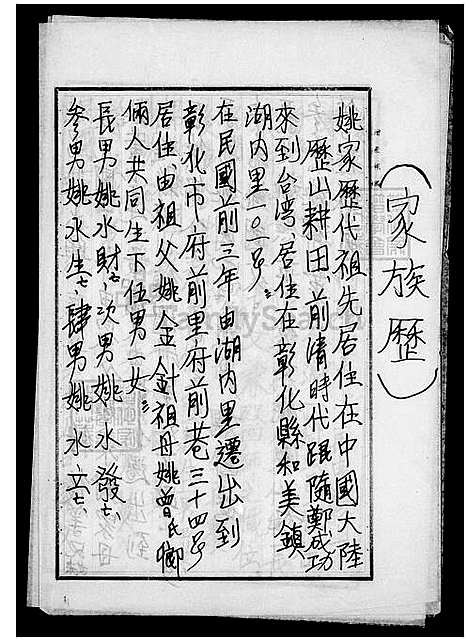 (家族歷)
姚家歷代祖先居住在中國大陸
歷山耕田、前清時代跟隨鄭成功
來到台湾、居住在彰化縣和美鎮
湖內里一0一号
在民國前三年由湖內里遷出到
彰化市、府前里府前巷三十四号
居住、由祖父姚金針祖母姚曾氏
倆人共同生下伍男一女
長男姚水財、次男姚水發、
參男姚水生、肆男姚水立、